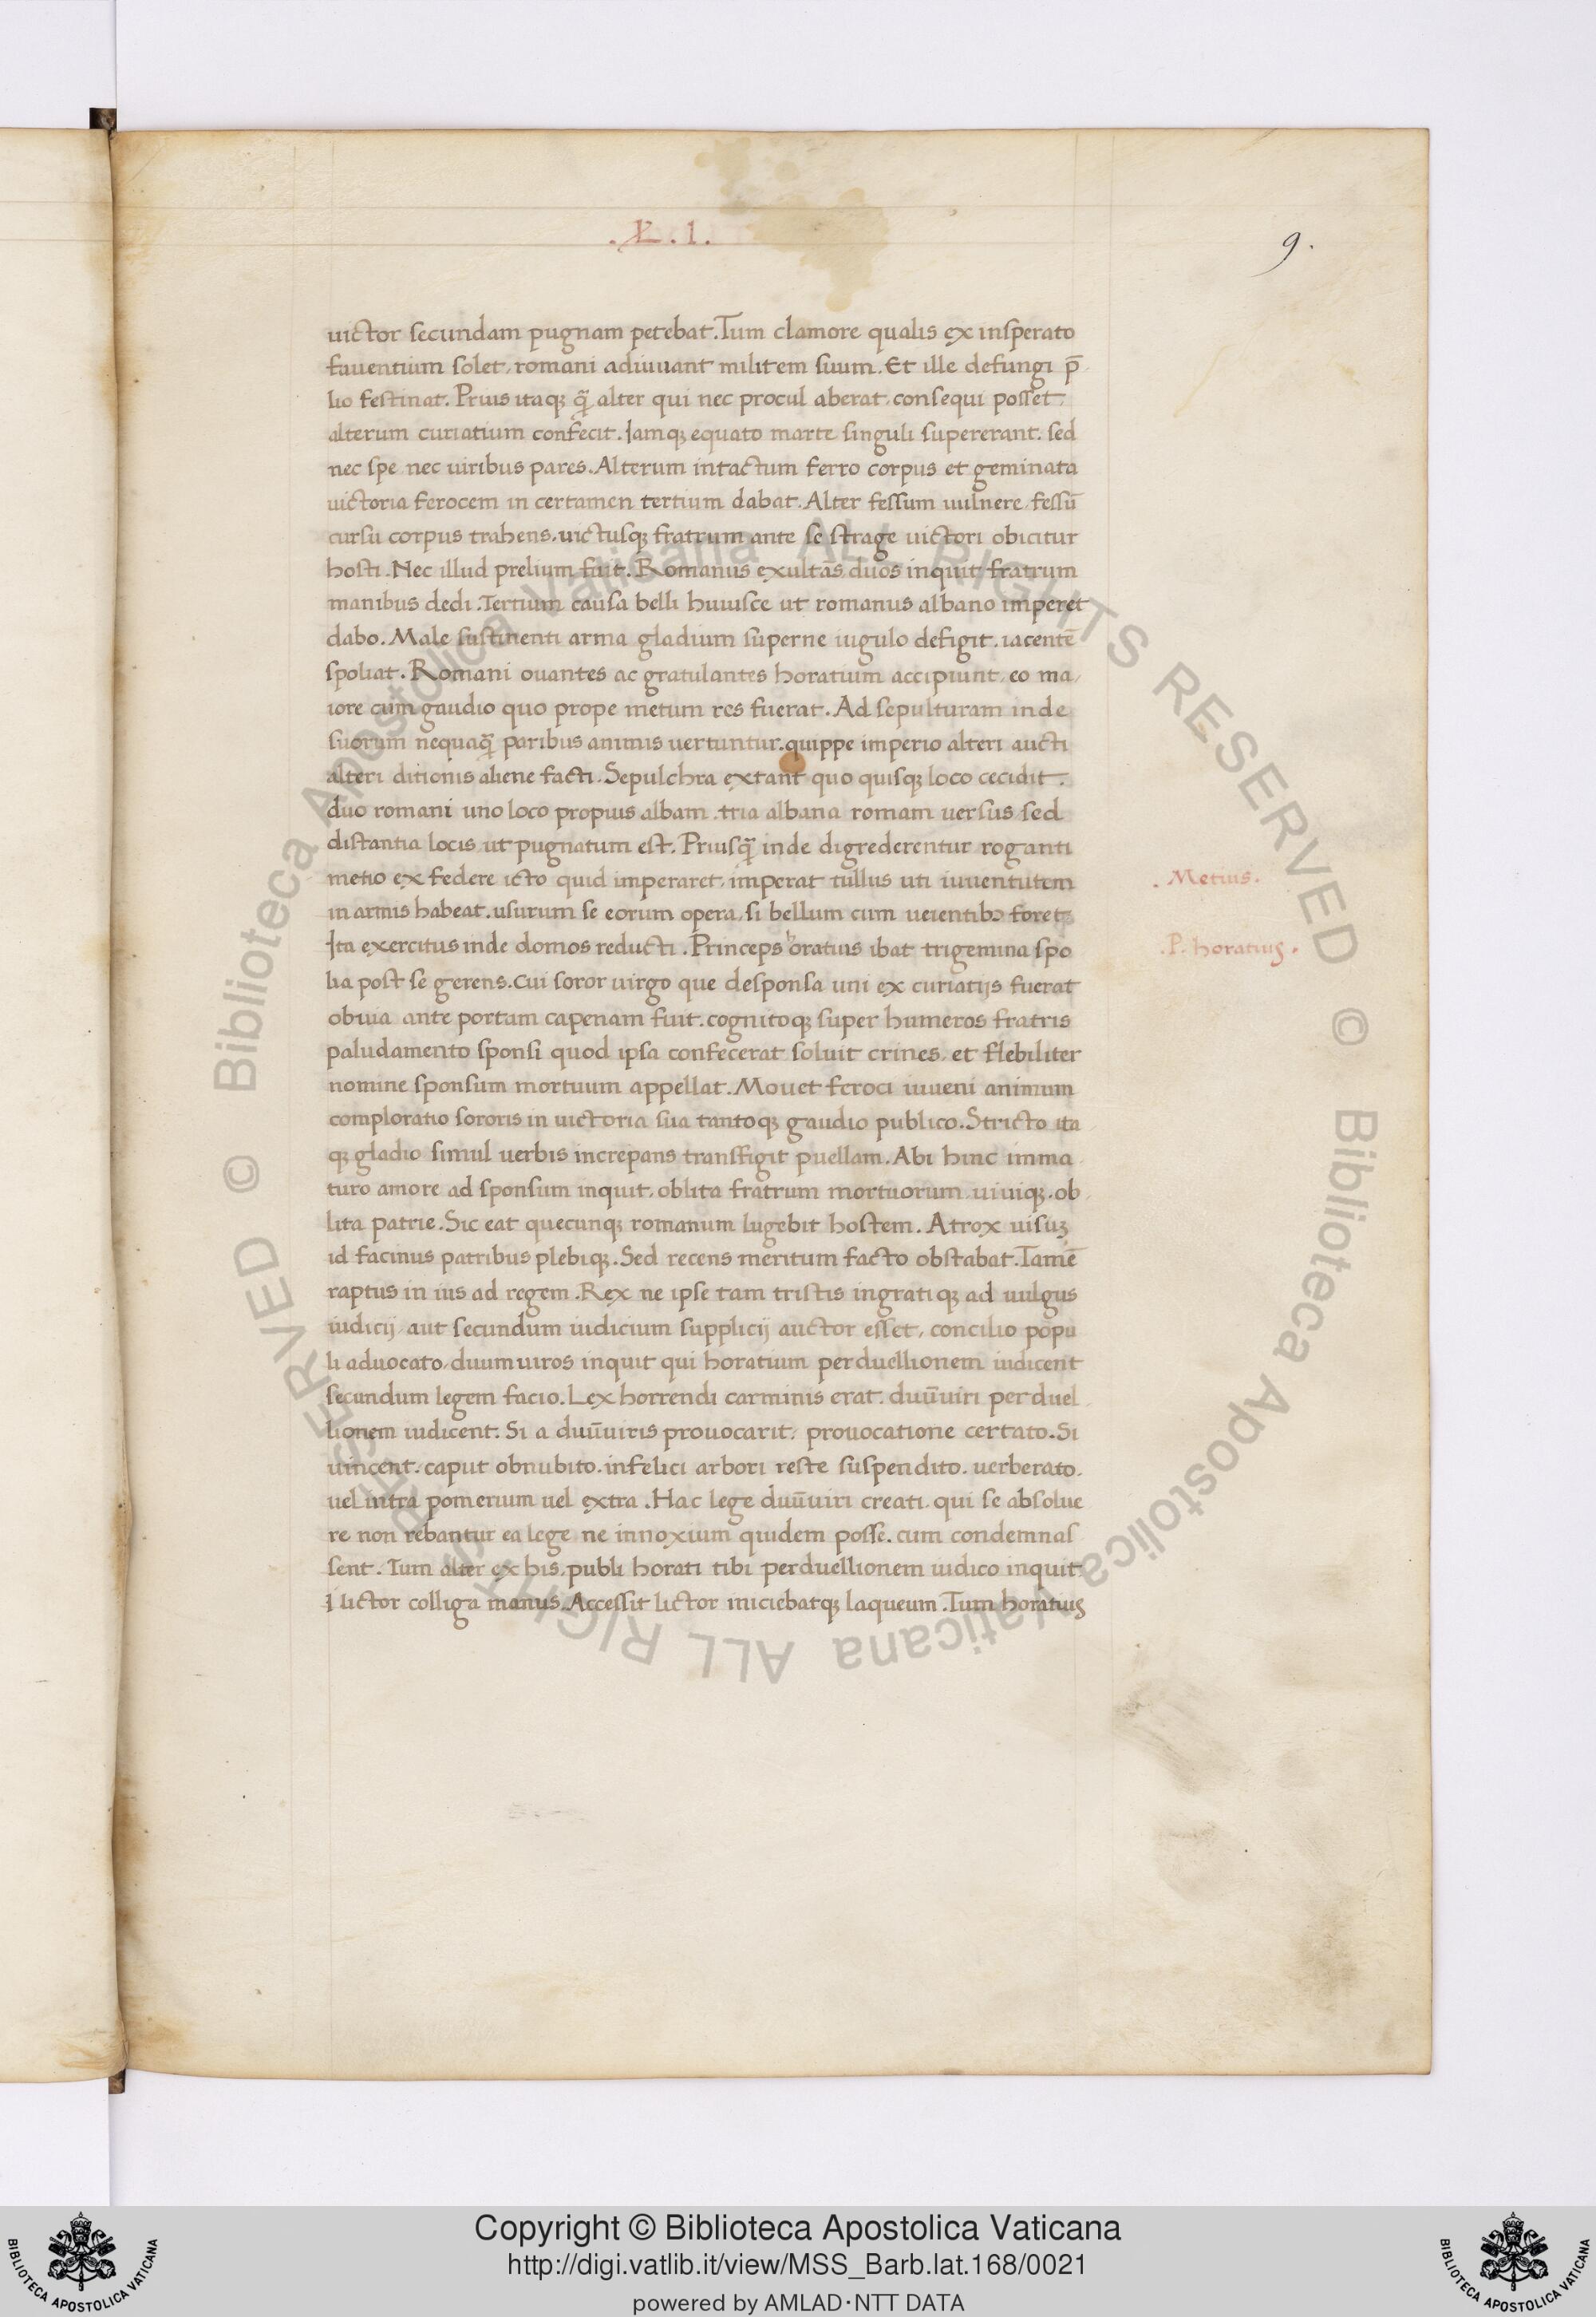 .L.1.
9.
uictor secundam pugnam petebat. Tum clamore qualis ex insperato
fauentium solet, romani adiuuant militem suum. Et ille defungi p̄
lio festinat. Prius itaqꝫ q̃ alter qui nec procul aberat, consequi posset,
alterum curiatium confecit. Iamqꝫ equato marte singuli supererant. sed
nec spe nec uiribus pares. Alterum intactum ferro corpus et geminata
uictoria ferocem in certamen tertium dabat. Alter fessum uulnere, fessū
cursu corpus trahens, uictusqꝫ fratrum ante se strage uictori obicitur
hosti. Nec illud prelium fuit. Romanus exultās, duos inquit fratrum
manibus dedi. Tertium causa belli huiusce ut romanus albano imperet
dabo. Male sustinenti arma gladium superne iugulo defigit. iacentē
spoliat. Romani ouantes ac gratulantes horatium accipiunt, eo ma
iore cum gaudio quo prope metum res fuerat. Ad sepulturam inde
suorum nequaq̃ paribus animis uertuntur. quippe imperio alteri aucti
alteri ditionis aliene facti. Sepulchra extant quo quisqꝫ loco cecidit.
duo romani uno loco propius albam. tria albana romam uersus sed
distantia locis ut pugnatum est. Priusq̃ inde digrederentur roganti
metio ex federe icto quid imperaret, imperat tullus uti iuuentutem
in armis habeat. usurum se eorum opera, si bellum cum ueientibꝫ foret
Ita exercitus inde domos reducti. Princeps horatius ibat trigemina spo
lia post se gerens. cui soror uirgo que desponsa uni ex curiatijs fuerat
obuia ante portam capenam fuit. cognitoqꝫ super humeros fratris
paludamento sponsi quod ipsa confecerat soluit crines, et flebiliter
nomine sponsum mortuum appellat. Mouet feroci iuueni animum
comploratio sororis in uictoria sua tantoqꝫ gaudio publico. Stricto ita
qꝫ gladio simul uerbis increpans transfigit puellam. Abi hinc imma
turo amore ad sponsum inquit, oblita fratrum mortuorum, uiuiqꝫ. ob
lita patrie. Sic eat quecunqꝫ romanum lugebit hostem. Atrox uisuꝫ
id facinus patribus plebiqꝫ. Sed recens meritum facto obstabat. Tamē
raptus in ius ad regem. Rex ne ipse tam tristis ingratiqꝫ ad uulgus
iudicij aut secundum iudicium supplicij auctor esset, concilio popu
li aduocato, duumuiros inquit qui horatium perduellionem iudicent
secundum legem facio. Lex horrendi carminis erat. duūuiri perduel
lionem iudicent. Si a duūuiris prouocarit, prouocatione certato. Si
uincent, caput obnubito. infelici arbori reste suspendito. uerberato.
uel intra pomerium uel extra. Hac lege duūuiri creati. qui se absolue
re non rebantur ea lege ne innoxium quidem posse. cum condemnas
sent. Tum alter ex his, publi horati tibi perduellionem iudico inquit.
I lictor colliga manus. Accessit lictor iniciebatqꝫ laqueum. Tum horatius
. Metius.
.P. horatius.
© Biblioteca Apostolica Vaticana ALL RIGHTS RESERVED © Biblioteca Apostolica Vaticana ALL RIGHTS RESERVED
Copyright © Biblioteca Apostolica Vaticana
http://digi.vatlib.it/view/MSS_Barb.lat.168/0021
powered by AMLAD·NTT DATA
BIBLIOTECA APOSTOLICA VATICANA
BIBLIOTECA APOSTOLICA VATICANA